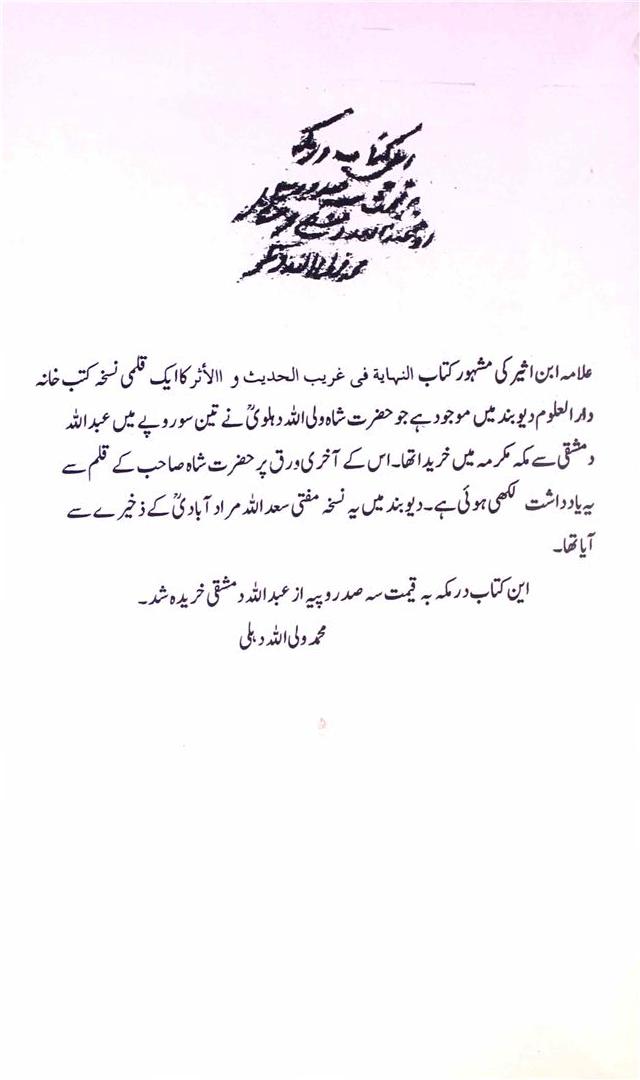 این کتاب در مکہ
علامہ ابن اثیر کی مشہور کتاب النهاية في غريب الحديث و االأثر کا ایک قلمی نسخہ کتب خانہ
دار العلوم دیوبند میں موجود ہے جو حضرت شاہ ولی اللہ دہلویؒ نے تین سو روپے میں عبد اللہ
دمشقی سے مکہ مکرمہ میں خریدا تھا۔ اس کے آخری ورق پر حضرت شاہ صاحب کے قلم سے
یہ یادداشت لکھی ہوئی ہے۔ دیوبند میں یہ نسخہ مفتی سعد اللہ مراد آبادیؒ کے ذخیرے سے
آیا تھا۔
این کتاب در مکہ بہ قیمت سہ صد روپیہ از عبد اللہ دمشقی خریدہ شد۔
محمد ولی اللہ دہلی